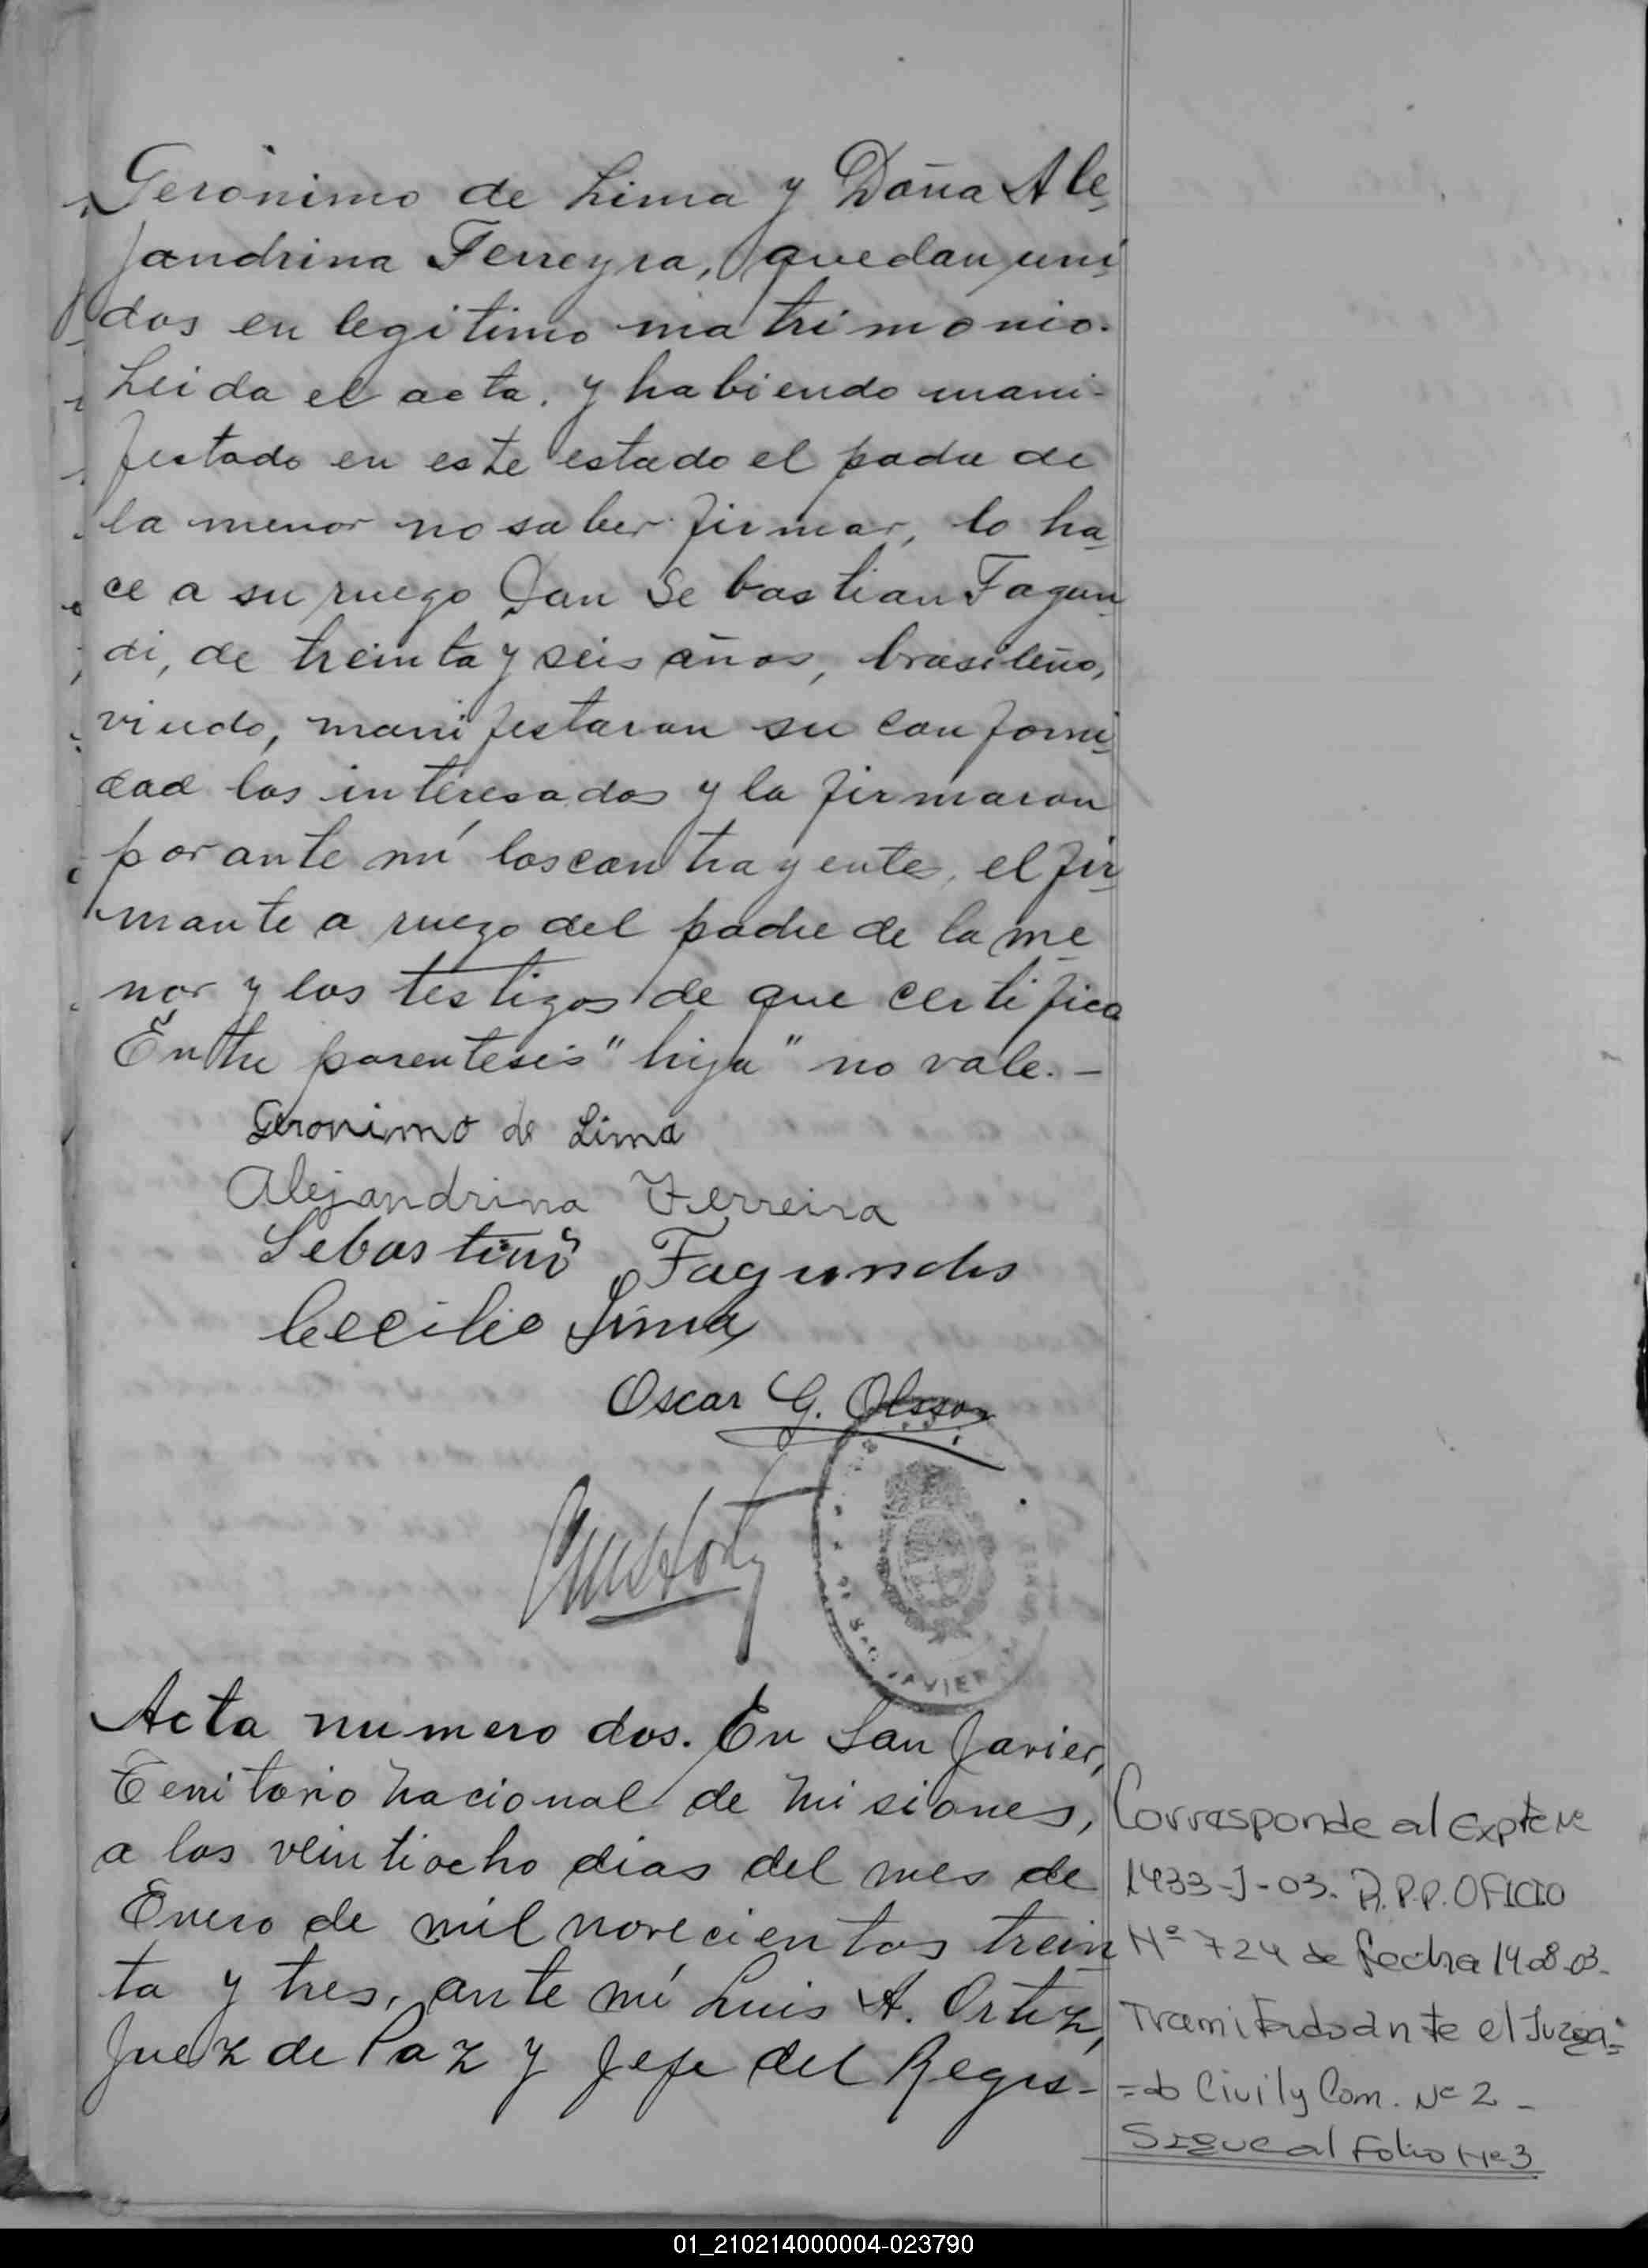 Gerónimo de Lima y Doña Ale
jandrina Ferreyra, quedan uni
dos en legitimo matrimonio.
Leida el acta, y habiendo mani-
festado en este estado el padre de
la menor no saber firmar, lo ha
ce a su ruego Don Sebastian Fagun
di, de treinta y seis años, brasileño,
viudo, manifestaron su conformi
dad los interesados y la firmaron
por ante mí los contrayentes, el fir
mante a ruego del padre de la me
nor y los testigos de que certifico
Entre parentesis "hija" no vale. —
Geronimo de Lima
Alejandrina Ferreira
Fagundes
Cecilio Lima
Oscar G. Olsson
JAVIER
Acta numero dos. En San Javier,
Territorio Nacional de Misiones,
a los veintiocho dias del mes de
Enero de mil novecientos trein
ta y tres, ante mí Luis A. Ortiz,
Juez de Paz y Jefe del Regis-
Corresponde al Expte Nº
1433-J-03. R.P.P. OFICIO
Nº 724 de fecha 14.08.03.
Tramitado ante el Juzga=
=do Civil y Com. Nº 2 -
Sigue al Folio Nº 3
01_210214000004-023790